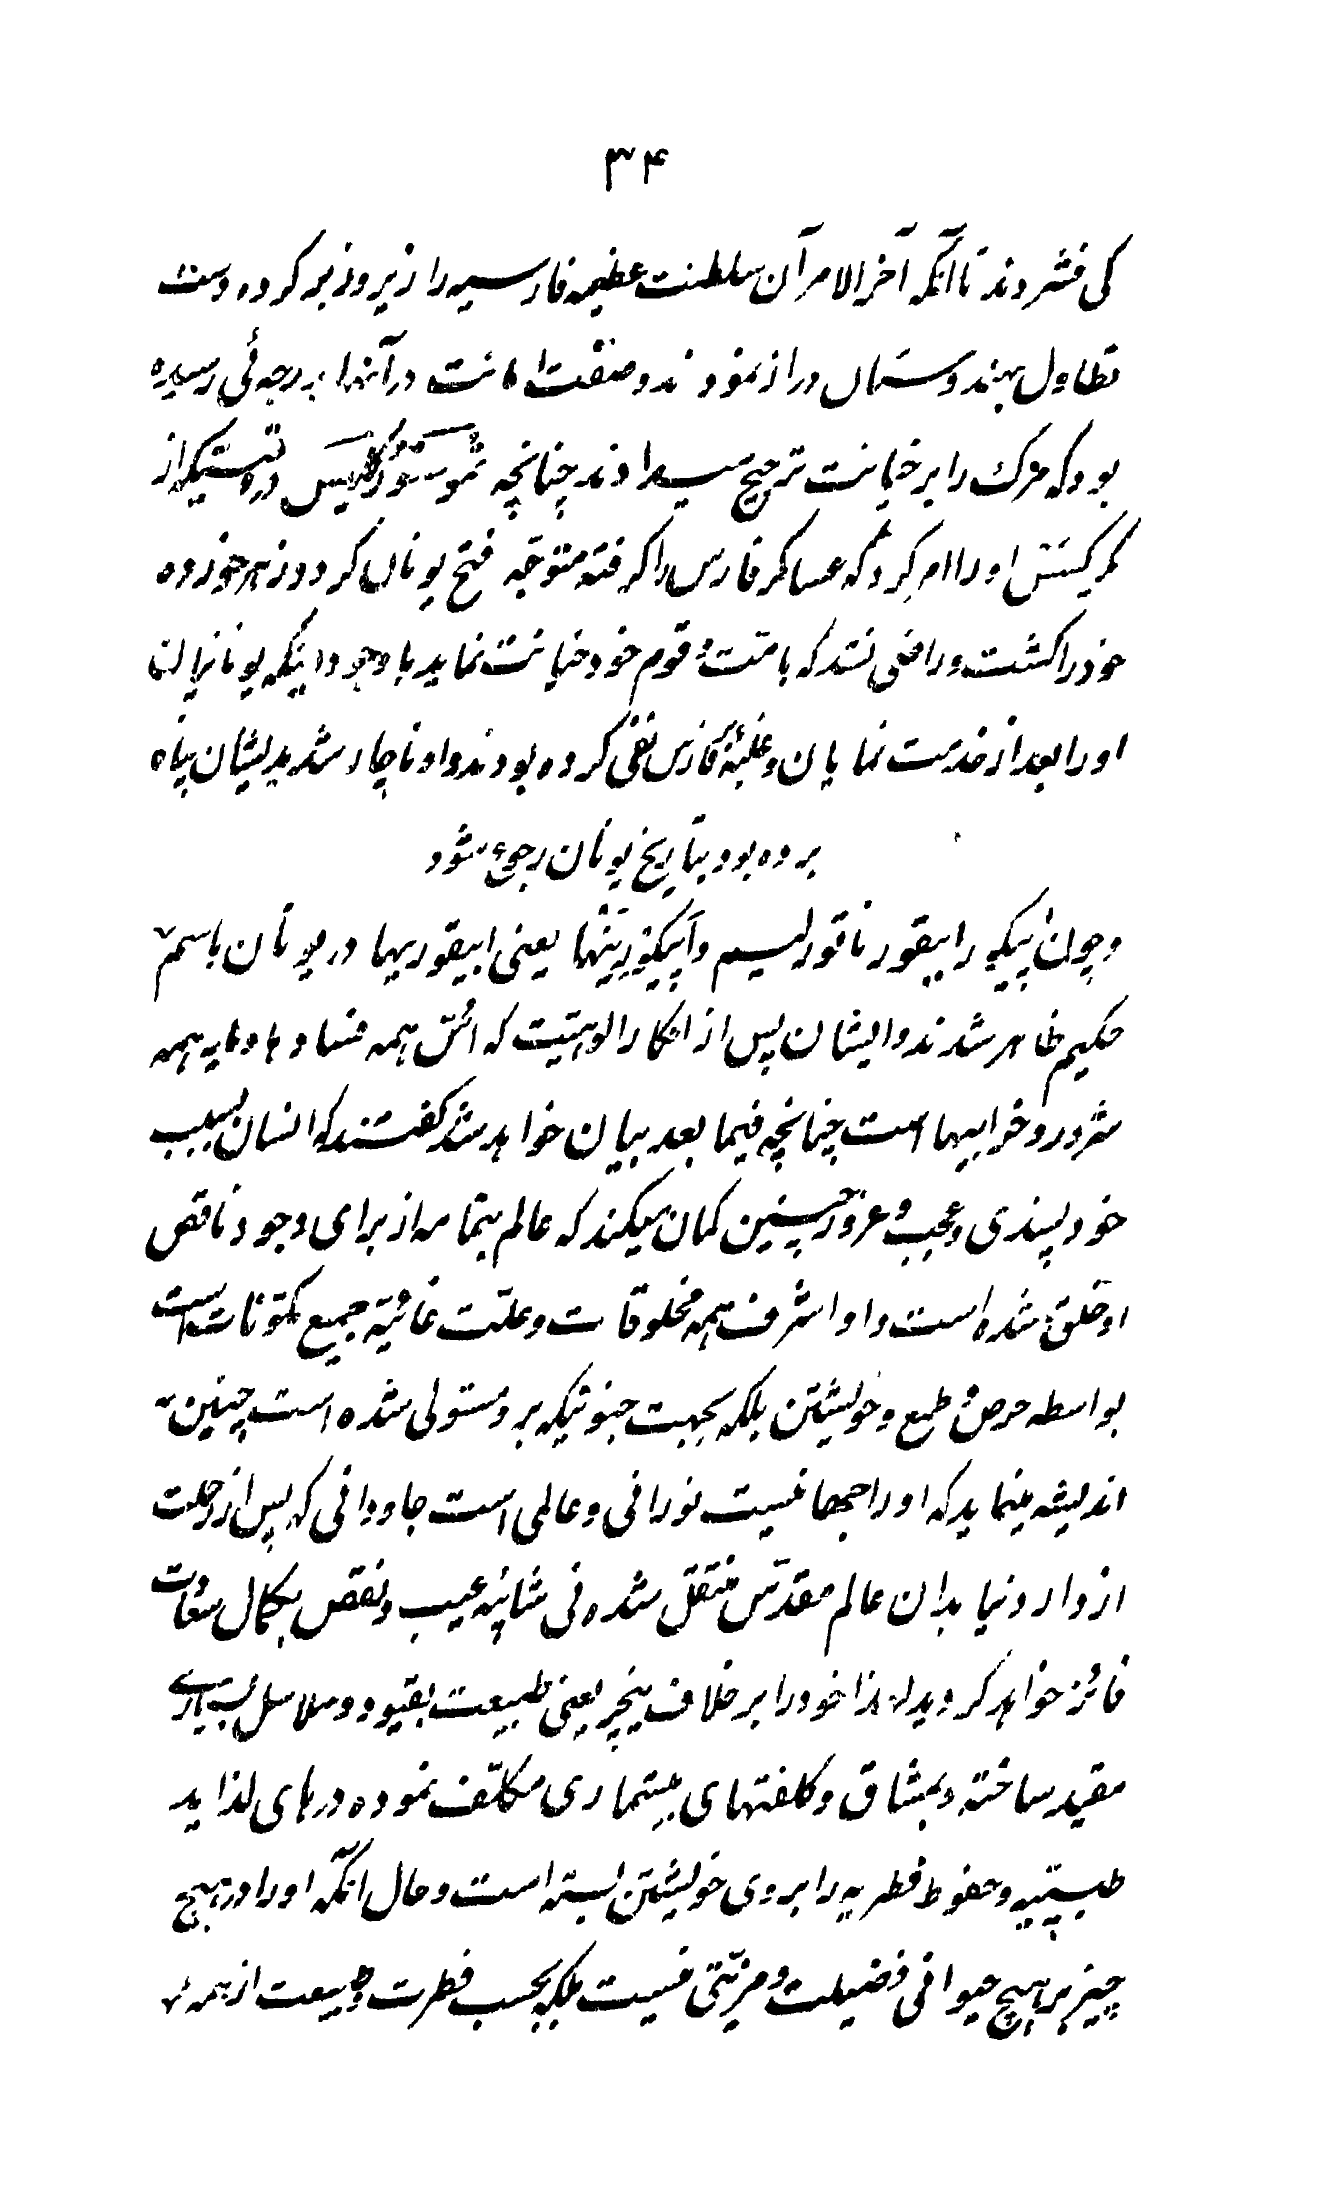 ۳۴
کی فشردند تا آنکه آخر الامر آن سلطنت عظیمه فارسیه را زیر و زبر کرده دست
تطاول بهندوستان دراز نمودند و صفت امانت در آنها بدرجه‌ئی رسیده
بود که مرگ را بر خیانت ترجیح میدادند چنانچه تموستوکلیس در وقتیکه از
گزرکسس او را امر کرد که عساکر فارس را گرفته متوجّه فتح یونان گردد زهر خورده
خود را کشت و راضی نشد که با ملت و قوم خود خیانت نماید با وجود اینکه یونانیان
او را بعد از خدمت نمایان و غلبهٔ فارس نفی کرده بودند و او ناچار شده بدیشان پناه
برده بود بتاریخ یونان رجوع شود
و چون اپیکور ابیقور ناتورلیسم و اپیکورینها یعنی ابیقوریها در یونان باسم
حکیم ظاهر شدند و ایشان پس از انکار الوهیّت که اسّ همه فسادها و مایه همه
شرور و خرابیها است چنانچه فیما بعد بیان خواهد شد گفتند که انسان بسبب
خود پسندی و عجب و غرور چنین گمان میکند که عالم بتمامه از برای وجود ناقص
او خلق شده است و او اشرف همه مخلوقات و علّت غائیّه جمیع مکونات است
بواسطه حرص و طمع و خویشتن بلکه بجهت جنونیکه برو مستولی شده است چنین
اندیشه مینماید که او را جهانیست نورانی و عالمی است جاودانی که پس از رحلت
از دار دنیا بدان عالم مقدّس منتقل شده بی شائبه عیب و نقص بکمال سعادت
فائز خواهد گردید لهذا خود را بر خلاف نیچر یعنی طبیعت بقیود و سلاسل بسیاری
مقید ساخته و بمشاق و کلفتهای بیشماری مکلّف نموده درهای لذاید
طبیعیه و حظوظ فطریه را بروی خویشتن بسته است و حال آنکه او را در هیچ
چیز بر هیچ حیوانی فضیلت و مزیّتی نیست بلکه بحسب فطرت و طبیعت از همه